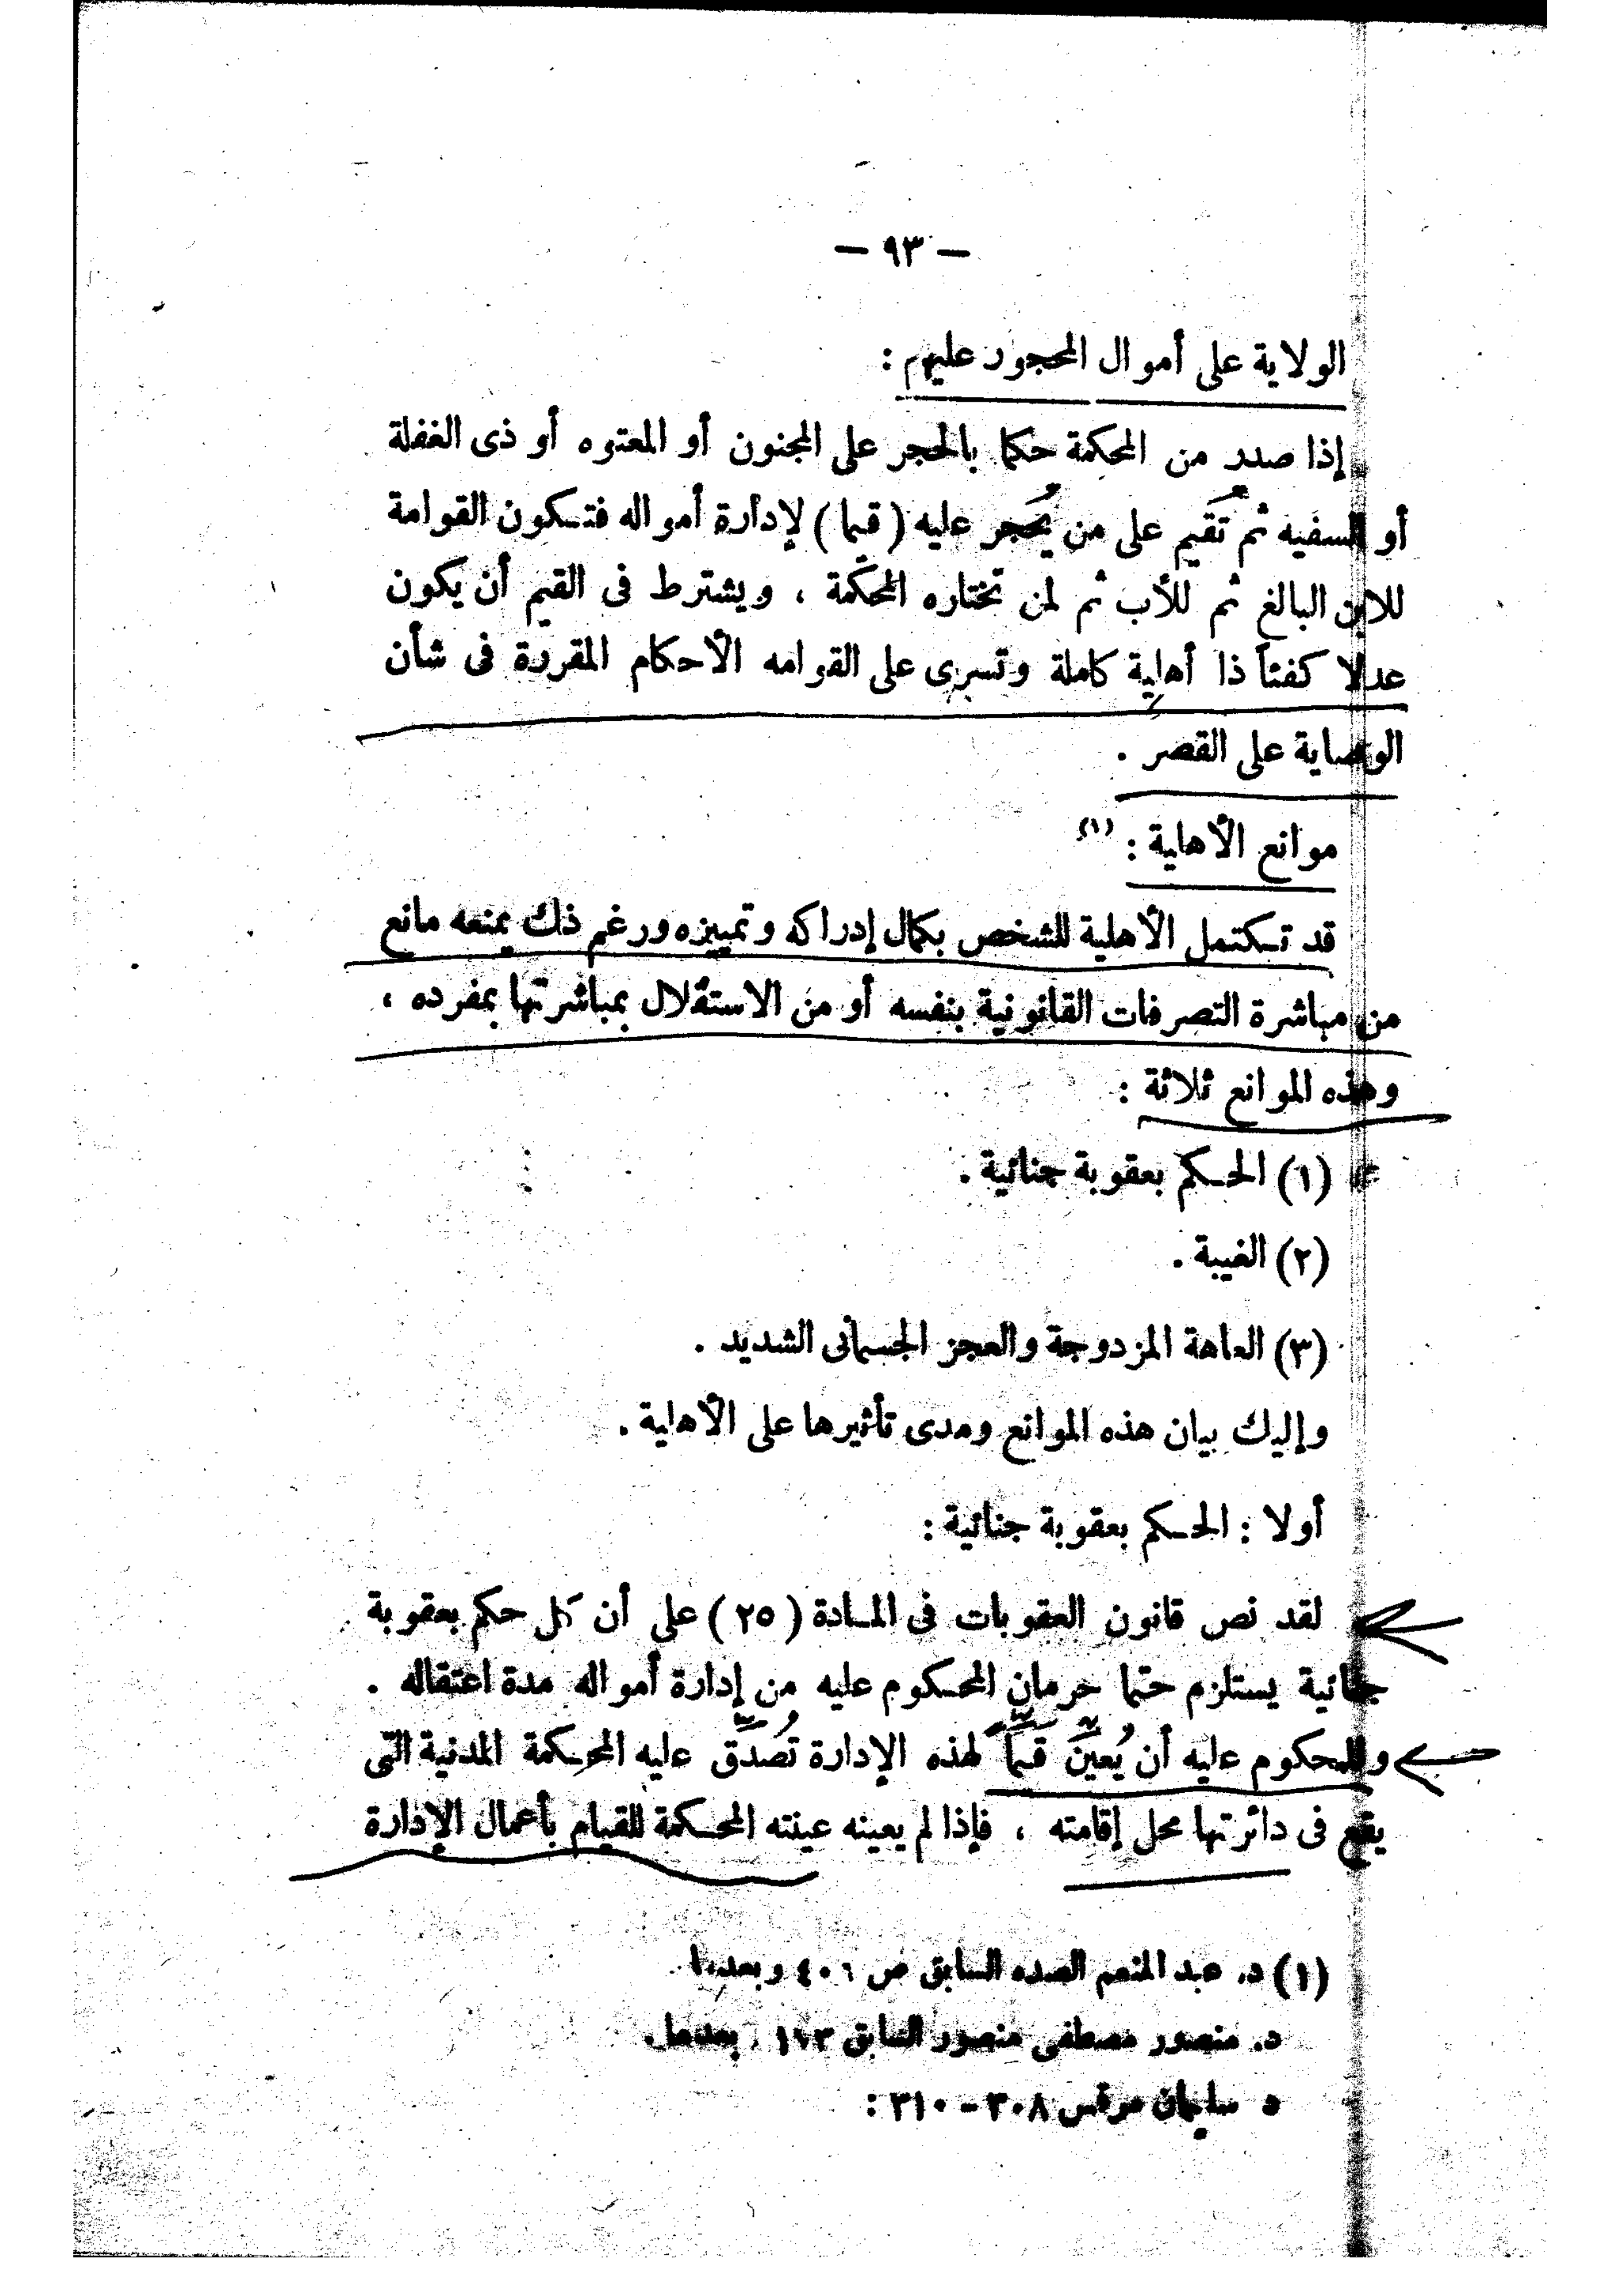 — ٩٣ —
الولاية على أموال المحجور عليهم :
إذا صدر من المحكمة حكما بالحجر على المجنون أو المعتوه أو ذى الغفلة
أو السفيه ثم تُقَيم على من يُحَجر عليه ( قيما ) لإدارة أمواله فتكون القوامة
للابن البالغ ثم للأب ثم لمن تختاره المحكمة ، ويشترط فى القيم أن يكون
عدلا كفئاً ذا أهلية كاملة وتسرى على القوامه الأحكام المقررة فى شأن
الوصاية على القصر .
موانع الأهلية : (١)
قد تكتمل الأهلية للشخص بكمال إدراكه وتمييزه ورغم ذلك يمنعه مانع
من مباشرة التصرفات القانونية بنفسه أو من الاستقلال بمباشرتها بمفرده ،
وهذه الموانع ثلاثة :
(١) الحكم بعقوبة جنائية .
(٢) الغيبة .
(٣) العاهة المزدوجة والعجز الجسمانى الشديد .
وإليك بيان هذه الموانع ومدى تأثيرها على الأهلية .
أولا : الحكم بعقوبة جنائية :
لقد نص قانون العقوبات فى المادة ( ٢٥ ) على أن كل حكم بعقوبة
جنائية يستلزم حتما حرمان المحكوم عليه من إدارة أمواله مدة اعتقاله .
وللمحكوم عليه أن يُعيِّنَ قَيِّماً لهذه الإدارة تُصَدِّق عليه المحكمة المدنية التى
يقع فى دائرتها محل إقامته ، فإذا لم يعينه عينته المحكمة للقيام بأعمال الإدارة
(١) د. عبد المنعم الصده السابق ص ٤٠٦ وبعدها
د. منصور مصطفى منصور السابق ١٧٣ بعدها .
د سليمان مرقس ٣٠٨ - ٣١٠ :